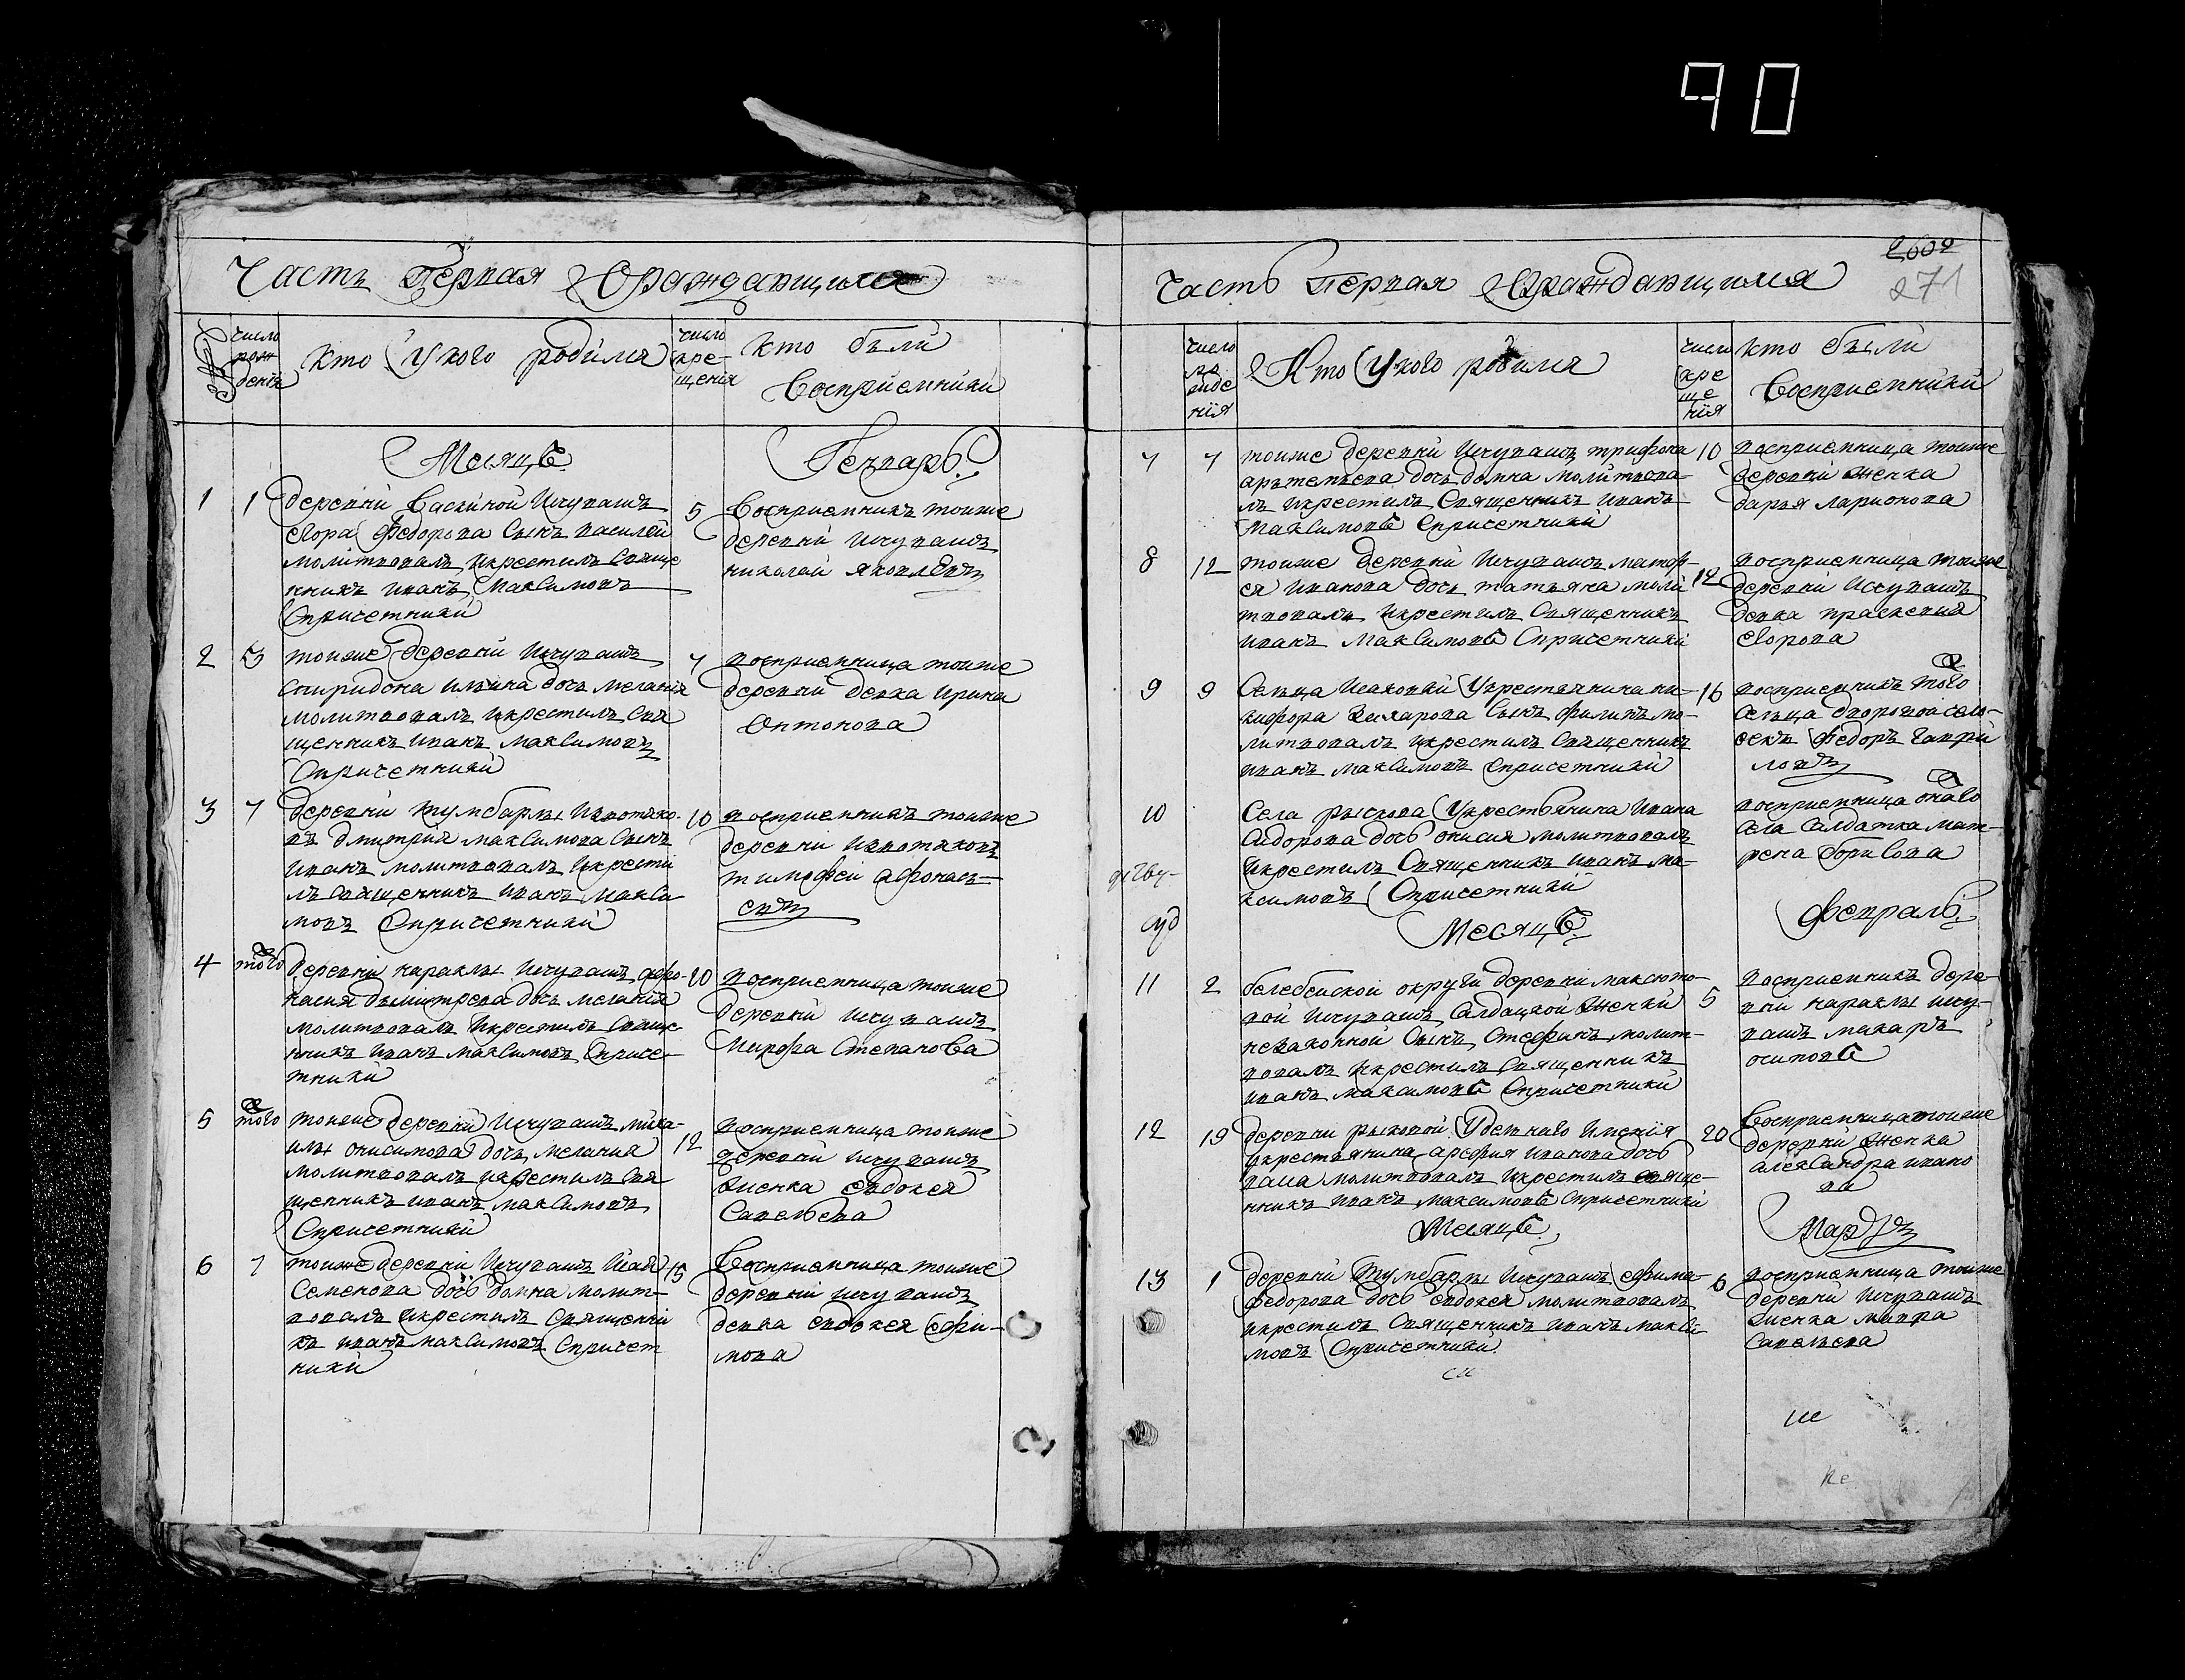 90
Часть Первая О раждающимся
число рож дения
Кто Укого родился
число кре- щения
Кто были
Восприемники
Месяцъ
Генварь
1
1
деревни Васкиной Ичувашъ
егора Федорова Сынъ василей
молитвовалъ икрестилъ Свяще
нникъ иванъ Максимовъ
Спричетники
5
Восприемникъ тоиже
деревни ичувашъ
николай яковлевъ
2
5
тоиже деревни Ичувашъ
Спиридона ильина дочь мелания
молитвовалъ икрестилъ Свя
щенникъ иванъ максимовъ
Спричетники
7
восприемница тоиже
деревни девка ирина
Онтонова
3
7
деревни тумбарлы
въ дмитрия максимова Сынъ
иванъ молитвовалъ икрести
лъ священникъ иванъ макси
мовъ Спричетники
10
восприемникъ тоиже
деревни
тимофей афонась-
евъ
4
того
деревни караклы ичувашъ афо-
насия дьмитрева дочь мелания
молитвовалъ икрестилъ Свяще
нникъ иванъ максимовъ Сприче-
тники
10
восприемница тоиже
деревни ичувашъ
Степанова
5
того
тоиже деревни Ичувашъ миха-
илы онисимова дочь мелания
молитвовалъ икрестилъ Свя
щенникъ иванъ максимовъ
Спричетники
12
восприемница тоиже
деревни ичувашъ
женка евдокея
Савельева
6
7
тоиже деревни Ичувашъ Исая
Семенова дочь домна молит-
вовалъ икрестилъ Священни
къ иванъ максимовъ Спричет
ники
15
Восприемница тоиже
деревни ичувашъ
девка евдокея ефи-
мова
271
Часть первая О раждающимся
число ро жде ния
Кто Укого родился
число кре ще ния
кто были
Восприемники
7
7
тоиже деревни Ичувашъ трифона
артемьева дочь домна молитвова-
лъ икрестилъ Священникъ иванъ
Максимовъ Спричетники
10
восприемница тоиже
деревни женка
дарья ларионова
8
12
тоиже деревни Ичувашъ матф-
ея иванова дочь татьяна моли
твовалъ икрестилъ Священникъ
иванъ Максимовъ Спричетники
14
восприемница тоиже
деревни Ичувашъ
девка праскевия
егорова
9
9
Сельца Исаковки Укрестьянина ни-
кифора захарова Сынъ филипъ мо-
литвовалъ икрестилъ Священникъ
иванъ максимовъ Спричетники
16
восприемникъ того
Сельца дворовой чело-
векъ Федоръ Гаври
ловъ
10
Села рыскова Укрестьянина Ивана
Сидорова дочь онисия молитвовалъ
Икрестилъ Священникъ иванъ ма-
ксимовъ Спричетники
восприемница онаго
Села Салдатка мат-
рена борисова
Месяцъ
Февраль
11
2
белебейской округи деревни максюто-
вой Ичувашъ Салдацкой женки
незаконной Сынъ Стефанъ молит-
вовалъ икрестилъ Священникъ
иванъ максимовъ Спричетники
5
восприемникъ дере-
вни караклы ичу-
вашъ макаръ
осиповъ
12
19
деревни рысковой Удельнаго Имения
Укрестьянина арефия иванова дочь
васса молитвовалъ икрестилъ свяще-
нникъ иванъ максимовъ Спричетники
20
Восприемница тоиже
деревни женка
александра ивано
ва
Месяцъ
Мартъ
13
1
деревни Тумбарлы Ичувашъ ефима
федорова дочь евдокея молитвовалъ
икрестилъ Священникъ иванъ макси
мовъ Спричетники
6
восприемница тоиже
деревни Ичувашъ
женка мавра
Савельева